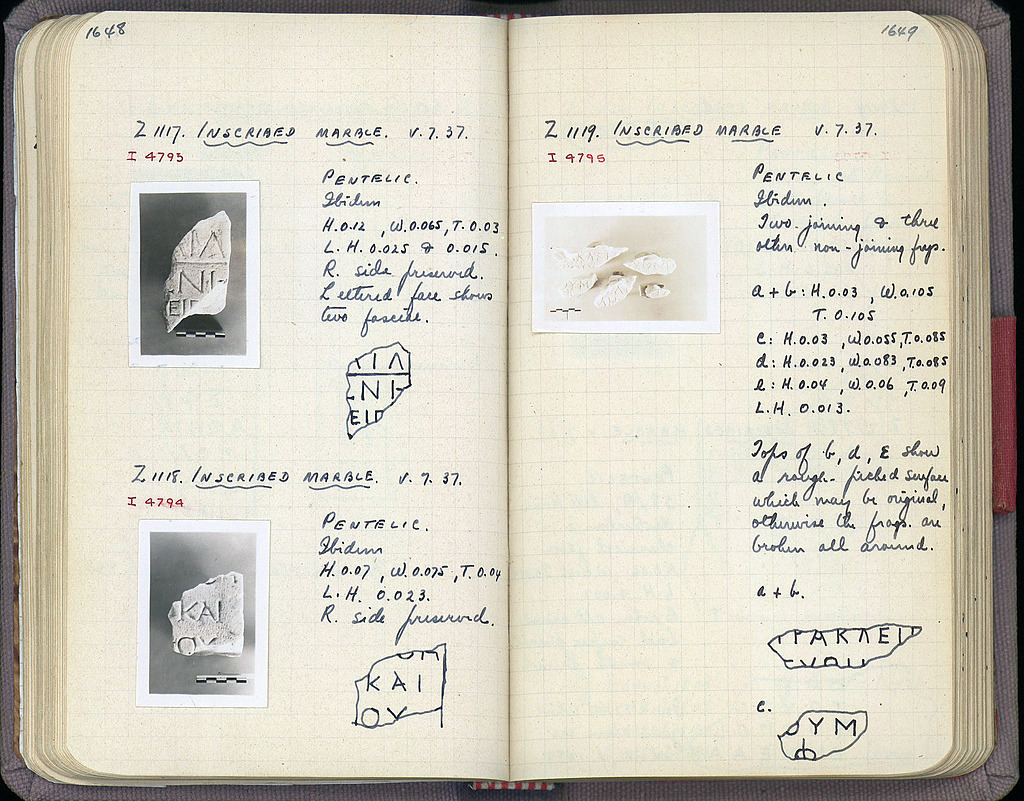 1648
Z 1117. INSCRIBED MARBLE. V.7.37.
I 4793
PENTELIC.
Ibidum
H.0.12, W.0.065, T.0.03
L.H. 0.025 & 0.015.
R. side preserved.
Lettered face shows
two fasciae.
ΙΛ
ΝΙ
ΕΙΓ
Z 1118. INSCRIBED MARBLE. V.7.37.
I 4794
PENTELIC.
Ibidum
H.0.07, W.0.075, T.0.04
L.H. 0.023.
R. side preserved.
ΚΑΙ
ΟΥ
1649
Z 1119. INSCRIBED MARBLE V.7.37.
I 4795
PENTELIC
Ibidum.
Two joining & three
other non-joining frags.
a + b: H.0.03, W.0.105
T.0.105
c: H.0.03, W.0.055, T.0.085
d: H.0.023, W.0.083, T.0.085
e: H.0.04, W.0.06, T.0.09
L.H. 0.013.
Tops of b, d, E show
a rough-picked surface
which may be original,
otherwise the frags. are
broken all around.
a + b.
ΡΑΚΛΕΙ
c.
ΟΥΜ
Φ